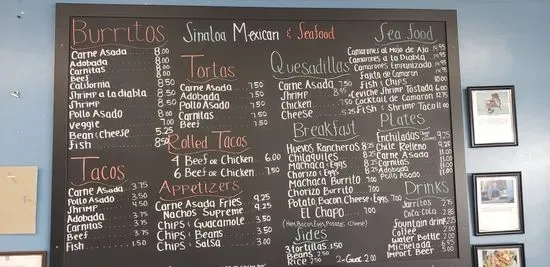 Sinaloa Mexican & Seafood
Burritos
Carne Asada 8.00
Adobada 8.00
Carnitas 8.00
Beef 8.00
California 8.50
Shrimp a la diabla 8.50
Shrimp 8.50
Pollo Asado 8.00
Veggie 7.00
Bean & Cheese 5.25
Fish 8.50
Tacos
Carne Asada 3.75
Pollo Asado 3.50
Shrimp 4.50
Adobada 3.75
Carnitas 3.75
Beef 3.75
Fish 1.50
Tortas
Carne Asada 7.50
Adobada 7.50
Pollo Asado 7.50
Carnitas 7.50
Beef 7.50
Rolled Tacos
4 Beef or Chicken 6.00
6 Beef or Chicken 7.50
Appetizers
Carne Asada Fries 9.25
Nachos Supreme 9.25
Chips & Guacamole 3.50
Chips & Beans 3.50
Chips & Salsa 3.00
Quesadillas
Carne Asada 7.50
Shrimp 8.95
Chicken 7.50
Cheese 5.25
Breakfast
Huevos Rancheros 8.25
Chilaquiles 8.25
Machaca & Eggs 8.25
Chorizo & Eggs 8.25
Machaca Burrito 7.00
Chorizo Burrito 7.00
Potato, Bacon, Cheese & Eggs 7.00
El Chapo 7.00
(Ham, Bacon, Eggs, Potatoes, Cheese)
Sides
3 tortillas 1.50
Beans 2.50
Rice 2.50
2-Guac 2.00
Sea food
Camarones al Mojo de Ajo 14.95
Camarones a la Diabla 14.95
Camarones Empanizado 14.95
Fajita de Camaron 14.95
Fish & Chips 10.00
Ceviche Shrimp Tostada 6.00
Cocktail de Camaron 12.75
Fish & Shrimp Taco 11.00
Plates
Enchiladas 9.25
Chile Relleno 9.25
Carne Asada 11.00
Carnitas 11.00
Adobada 11.00
Pollo Asado 11.00
Drinks
Jarritos 2.75
Coca Cola 2.85
Fountain drink 2.25
Coffee 2.00
Water Bottle 2.00
Michelada 6.95
Import Beer 5.00